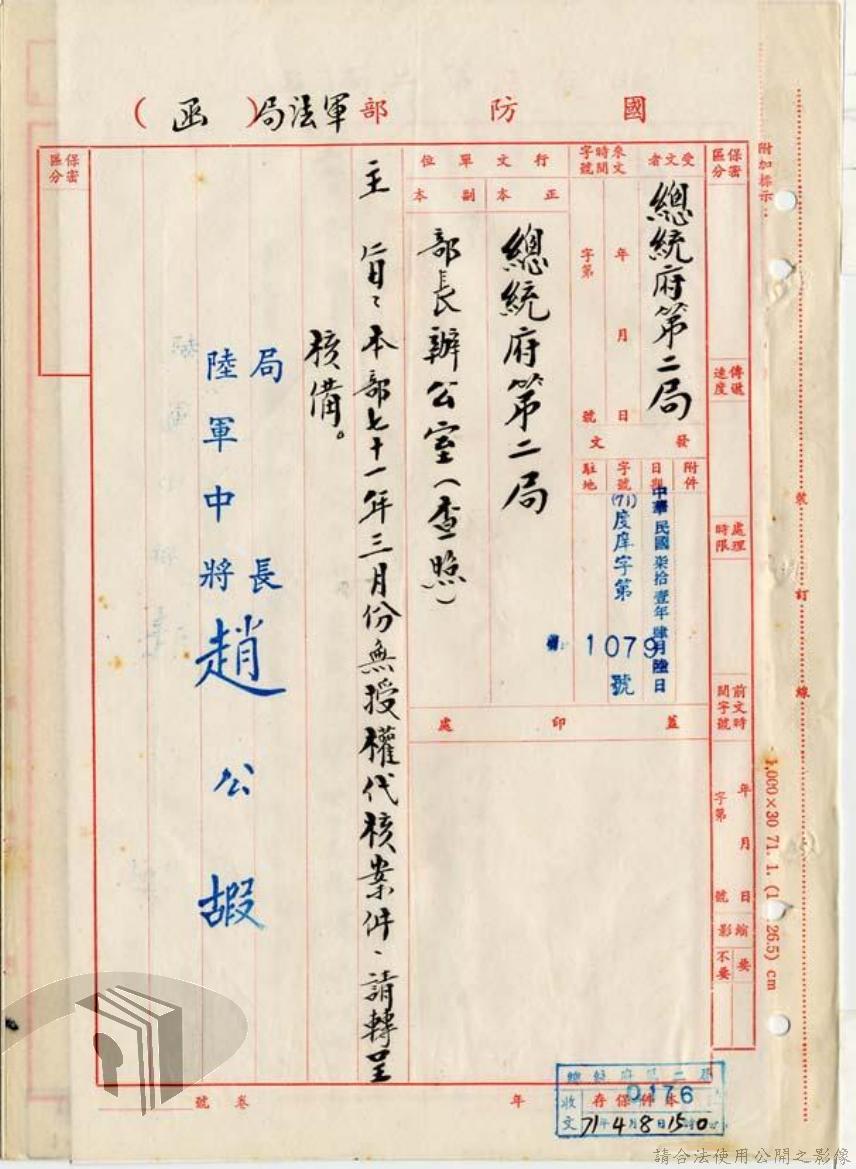 國防部軍法局（函）
附加標示：
保密區分
傳遞速度
處理時限
前文時間字號
年月日
字第號
縮影
要
不要
受文者
總統府第二局
來文時間字號
年月日
字第號
發文
附件
日期
中華民國柒拾壹年肆月陸日
字號
(71)度庠字第1079號
駐地
行文單位
正本
總統府第二局
副本
部長辦公室（查照）
蓋印處
主旨：本部七十一年三月份無授權代核案件、請轉呈
核備。
局長
陸軍中將趙公嘏
保密區分
裝訂線
1,000×30 71. 1. (1 26.5) cm
年
卷
號
總統府第二局
0176
本件保存
收文
71年4月8日15時0
請合法使用公開之影像